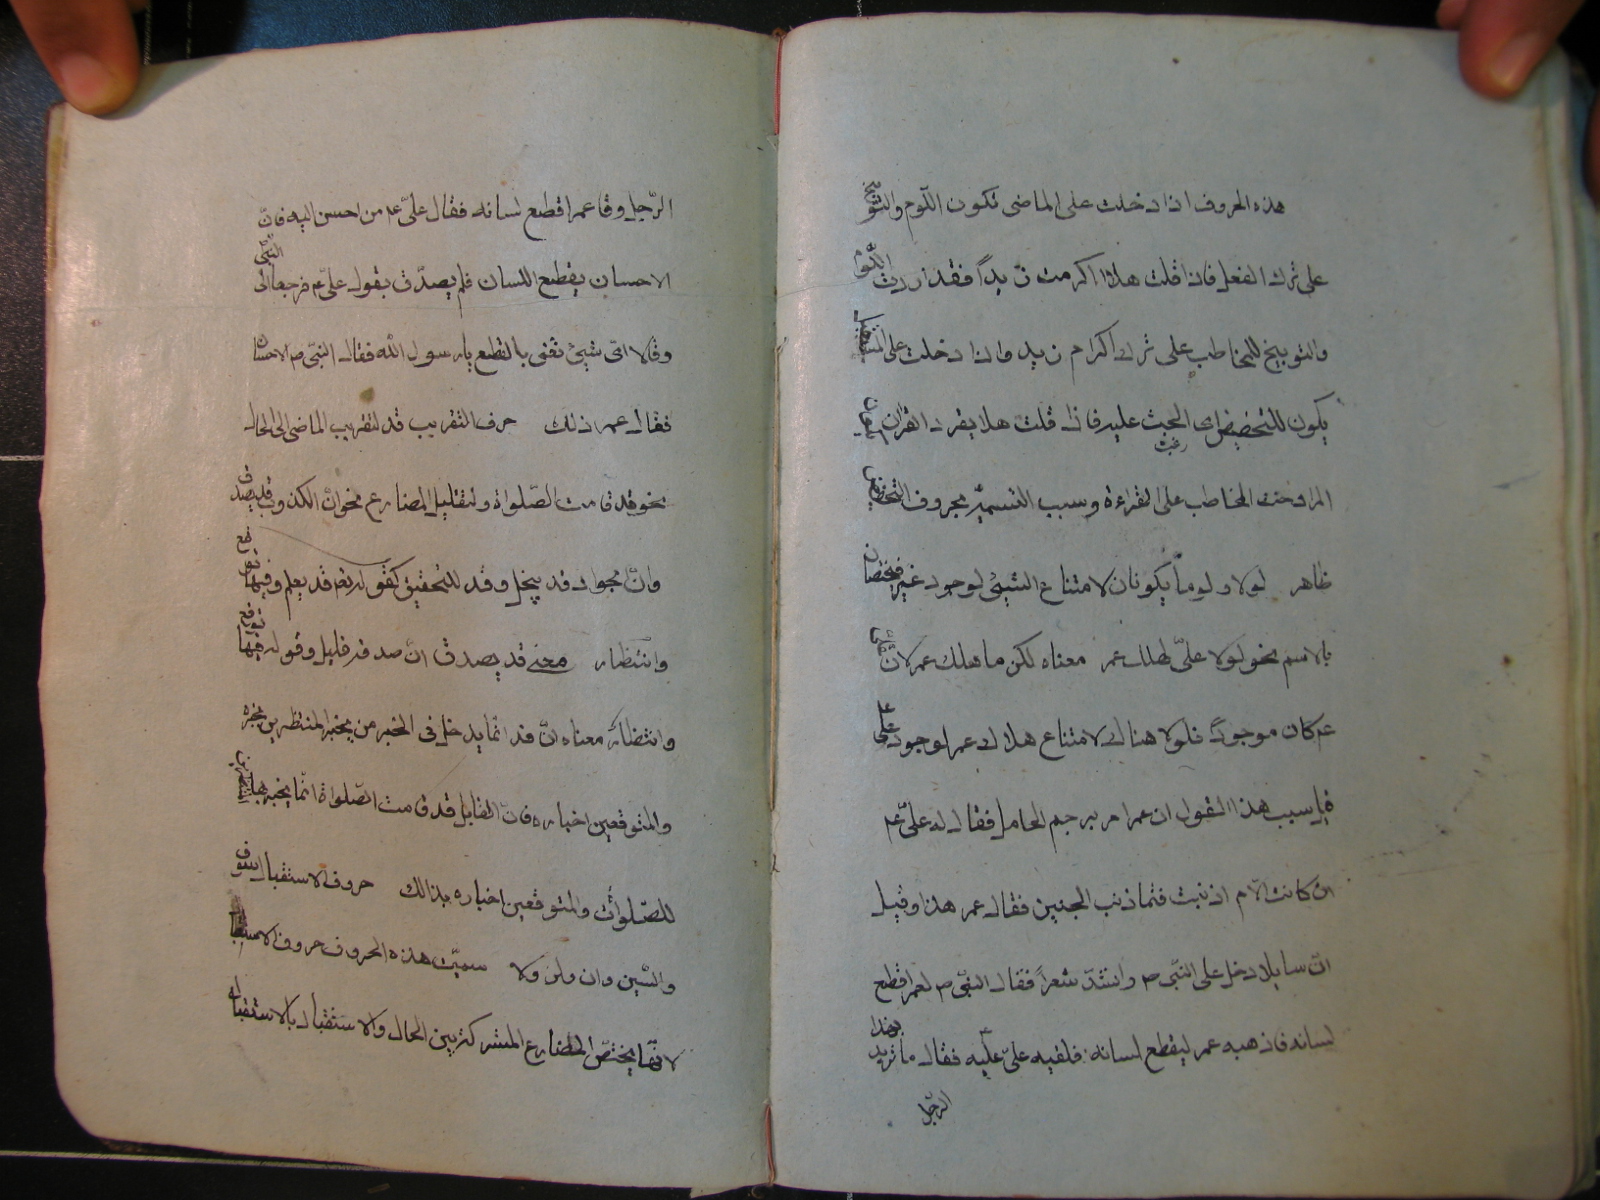 هذه الحروف اذا دخلت على الماضى تكون اللوم والتوبيخ
على ترك الفعل فاذا قلت هلا اكرمت زيداً فقد اردت اللوم
والتوبيخ للمخاطب على ترك اكرام زيد واذا دخلت على المستقبل
يكون للتحضيض اى الحث عليه فاذا قلت هلا يقرء القران
رغبت
المراد حث المخاطب على القراءة وسبب التسمية بحروف التحضيض
ظاهر لولا ولوما يكونان لامتناع الشيئ لوجود غيره فيختصان
بالاسم نحو لولا علىّ لهلك عمر معناه لكن ما هلك عمر لانّ علىّ
عم كان موجوداً فلولا هنالك لامتناع هلاك عمر لوجود على ع
قيل سبب هذا القول ان عمر امر برجم الحامل فقال له علىّ عم
ان كانت الاّم اذنبت فما ذنب الجنين فقال عمر هذا وقيل
انّ سايلا دخل على النبّى ص وانشد شعراً فقال النبّى ص لعمر اقطع
لسانه فاذهبه عمر ليقطع لسانه فلقيه علىّ عليه فقال ما تريد بهذا
الرّجل
الرّجل وقا عمر اقطع لسانه فقال علىّ عم من احسن اليه فانّ
الاحسان يقطع اللسان فلم يصدّق بقول علىّ عم فرجعا الى النبّى
وقالا اىّ شيئ تعنى بالقطع يا رسول الله فقال النبّى ص الاحسان
فقال عمر ذلك حرف التقريب قد لتقريب الماضى الى الحال
نحو قد قامت الصّلواة ولتقليل المضارع نحو انّ الكذوب قد يصدق
وانّ جواد قد يبخل وقد للتحقيق كقوله تعم قد يعلم وفيها توقع
وانتظار معنى قد يصدق انّ صدقه قليل وقوله فيها توقع
وانتظار معناه انّ قد انّما يدخل فى الخبر من يخبر المنتظرين بخبره
والمتوقعين اخباره فانّ القايل قد قامت الصّلواة انّما يخبر بها المنتظرين
للصّلوات والمتوقعين اخباره بذالك حروف الاستقبال سوف
والسّين وان ولن ولا سميّت هذه الحروف حروف الاستقبال
لانّها يختصّ المضارع المشتركة بين الحال والاستقبال بالاستقبال